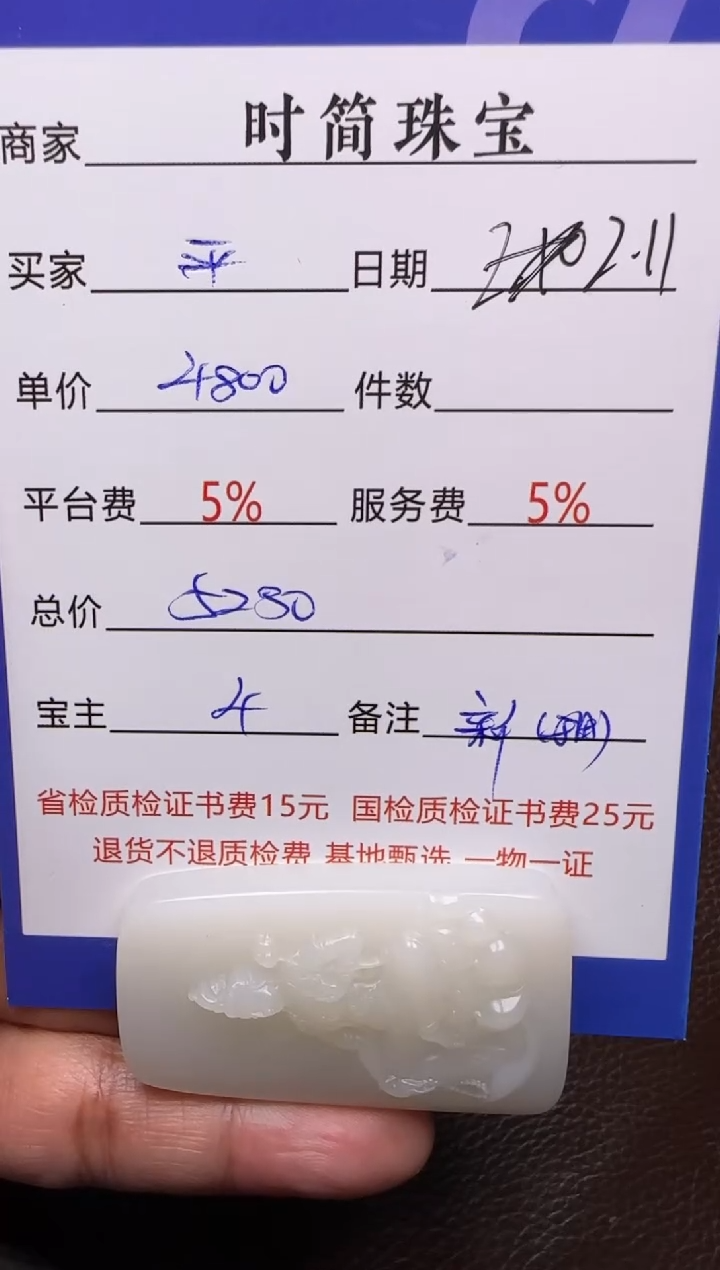 商家 时简珠宝
买家 平 日期 2.11
单价 4800 件数
平台费 5% 服务费 5%
总价 5280
宝主 4 备注 新
省检质检证书费15元 国检质检证书费25元
退货不退质检费 基地甄选 一物一证